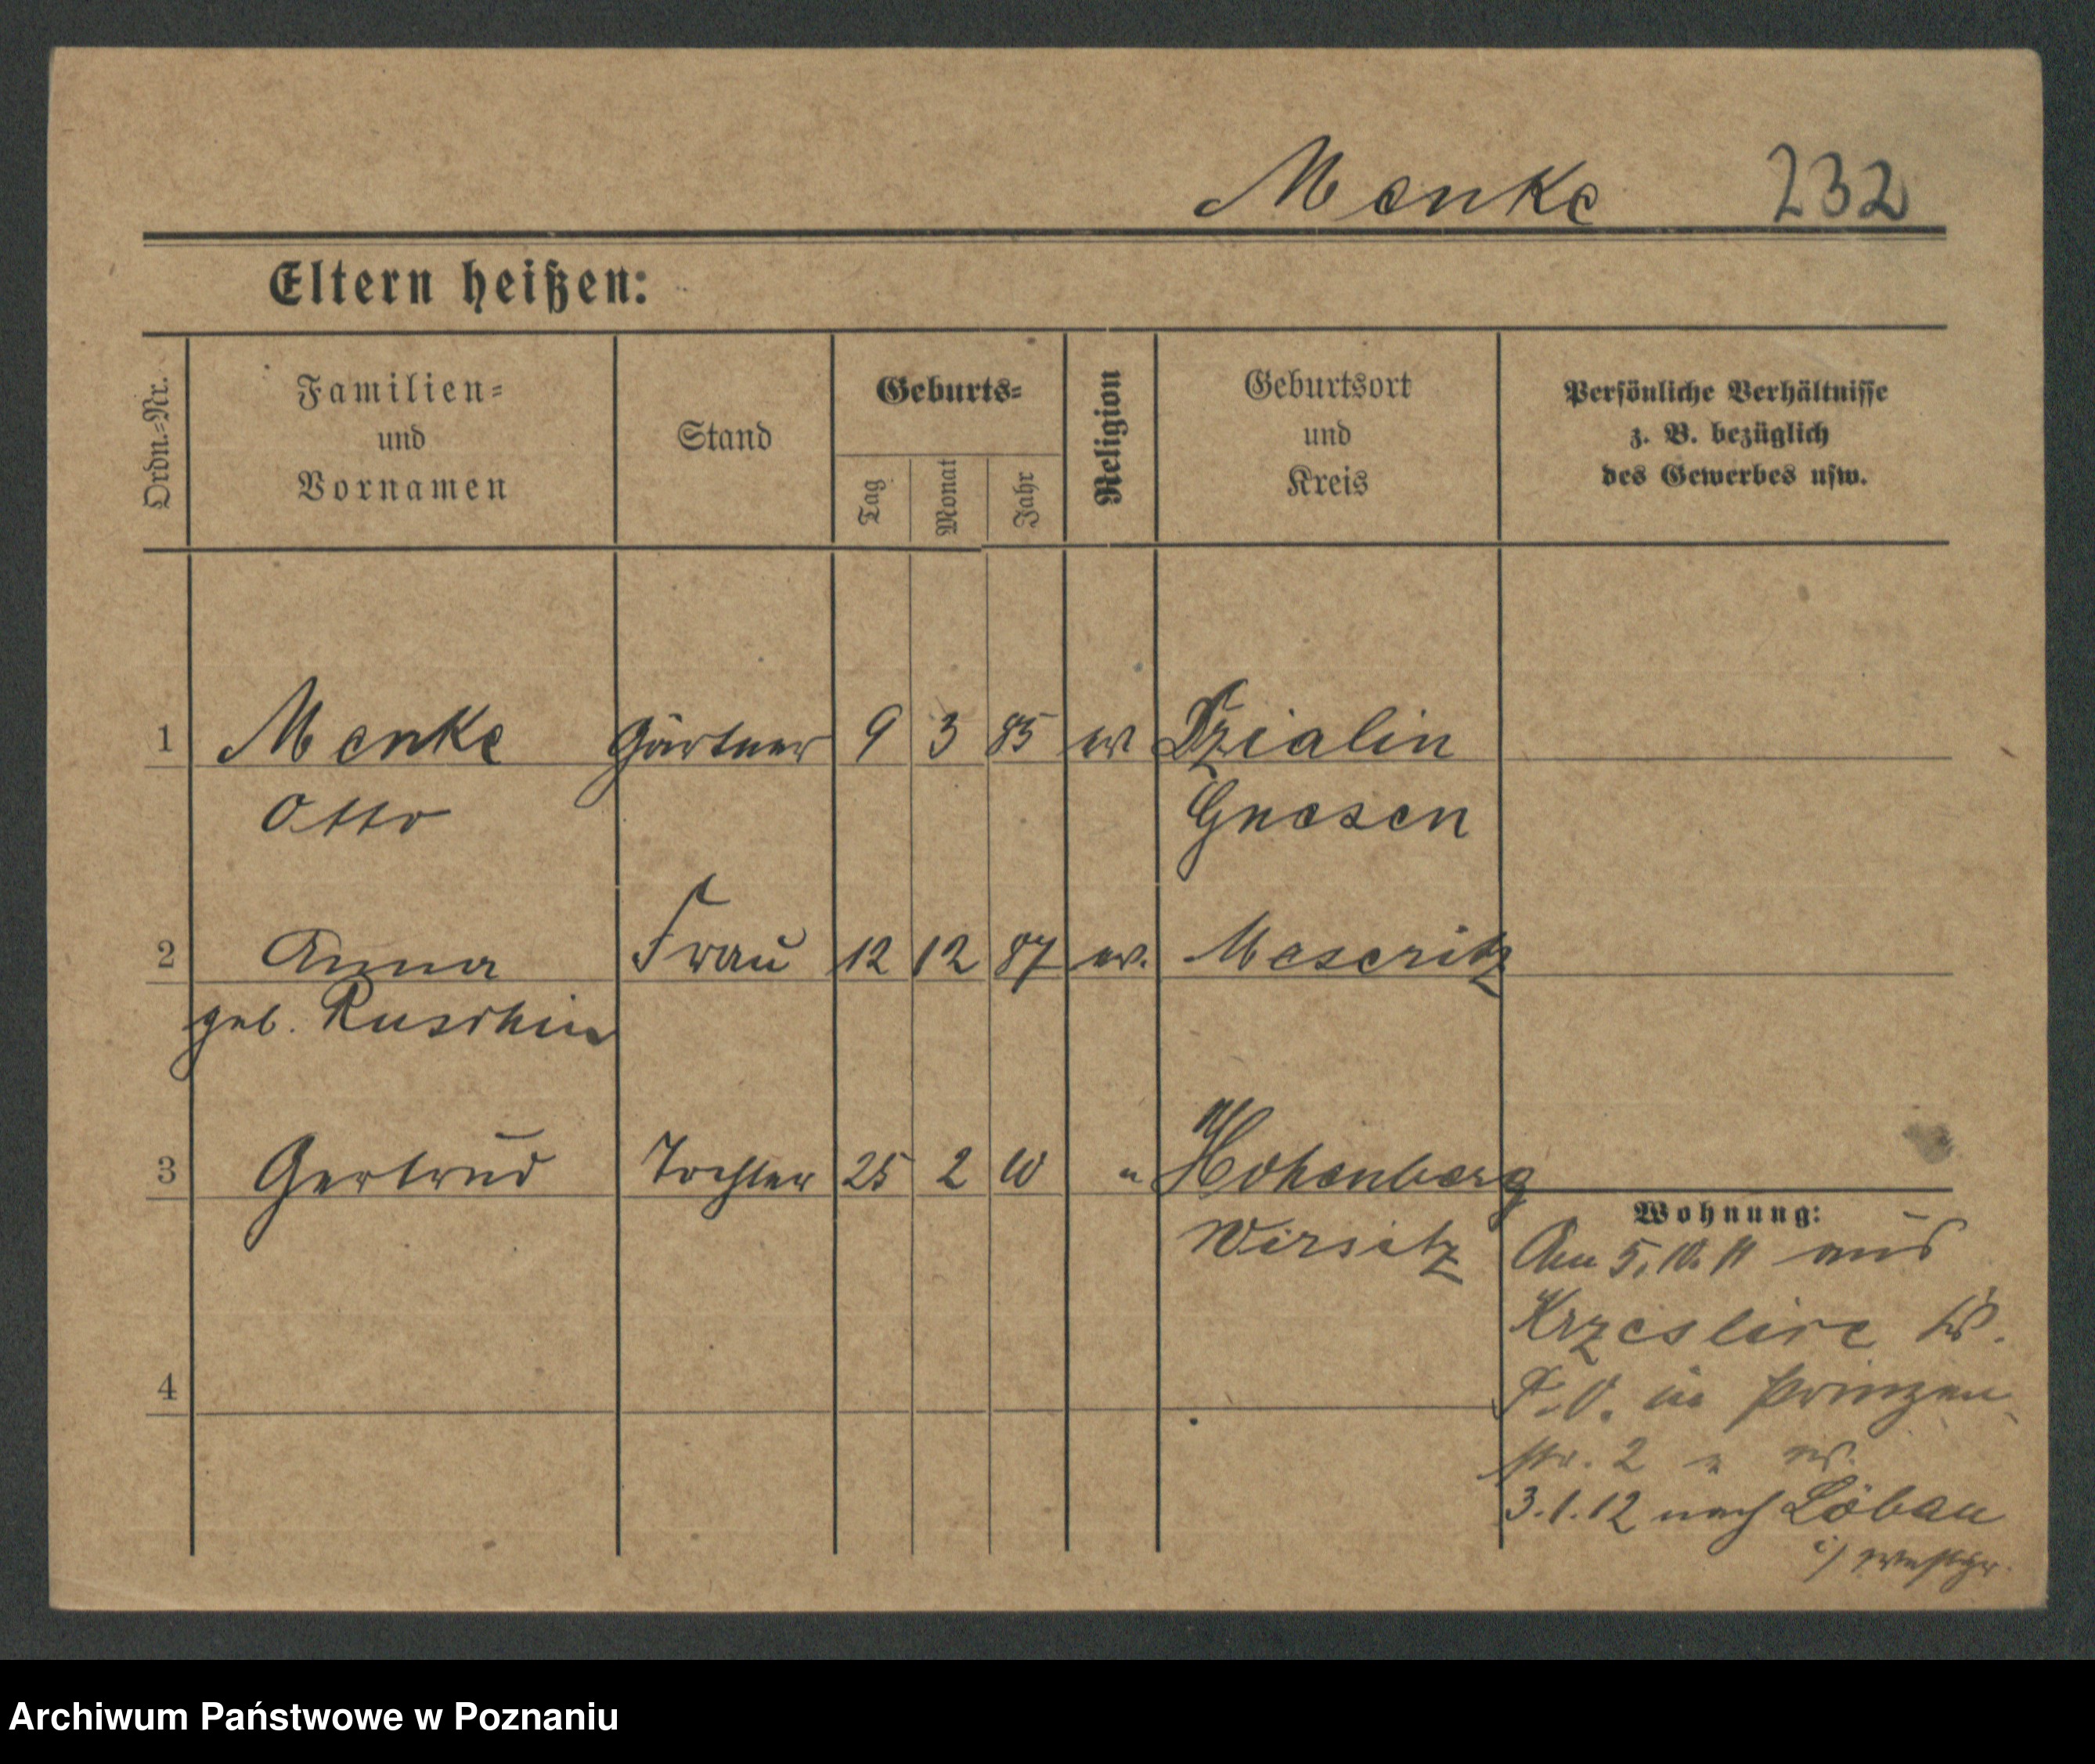 Menke 232
Eltern heißen:
Ordn.-Nr.
Familien-
und
Vornamen
Stand
Geburts-
Tag
Monat
Jahr
Religion
Geburtsort
und
Kreis
Persönliche Verhältnisse
z. B. bezüglich
des Gewerbes usw.
1 Menke Gärtner 9 3 85 ev Dzialin
Otto Gnesen
2 Anna Frau 12 12 87 ev. Meseritz
geb. Ruschin
3 Gertrud Tochter 25 2 10 " Hohenberg
Wirsitz
Wohnung:
Am 5.10.11 aus
Krzeslice
in Prinzen
str. 2
4
3.1.12 nach Löbau
i/ Westpr.
Archiwum Państwowe w Poznaniu